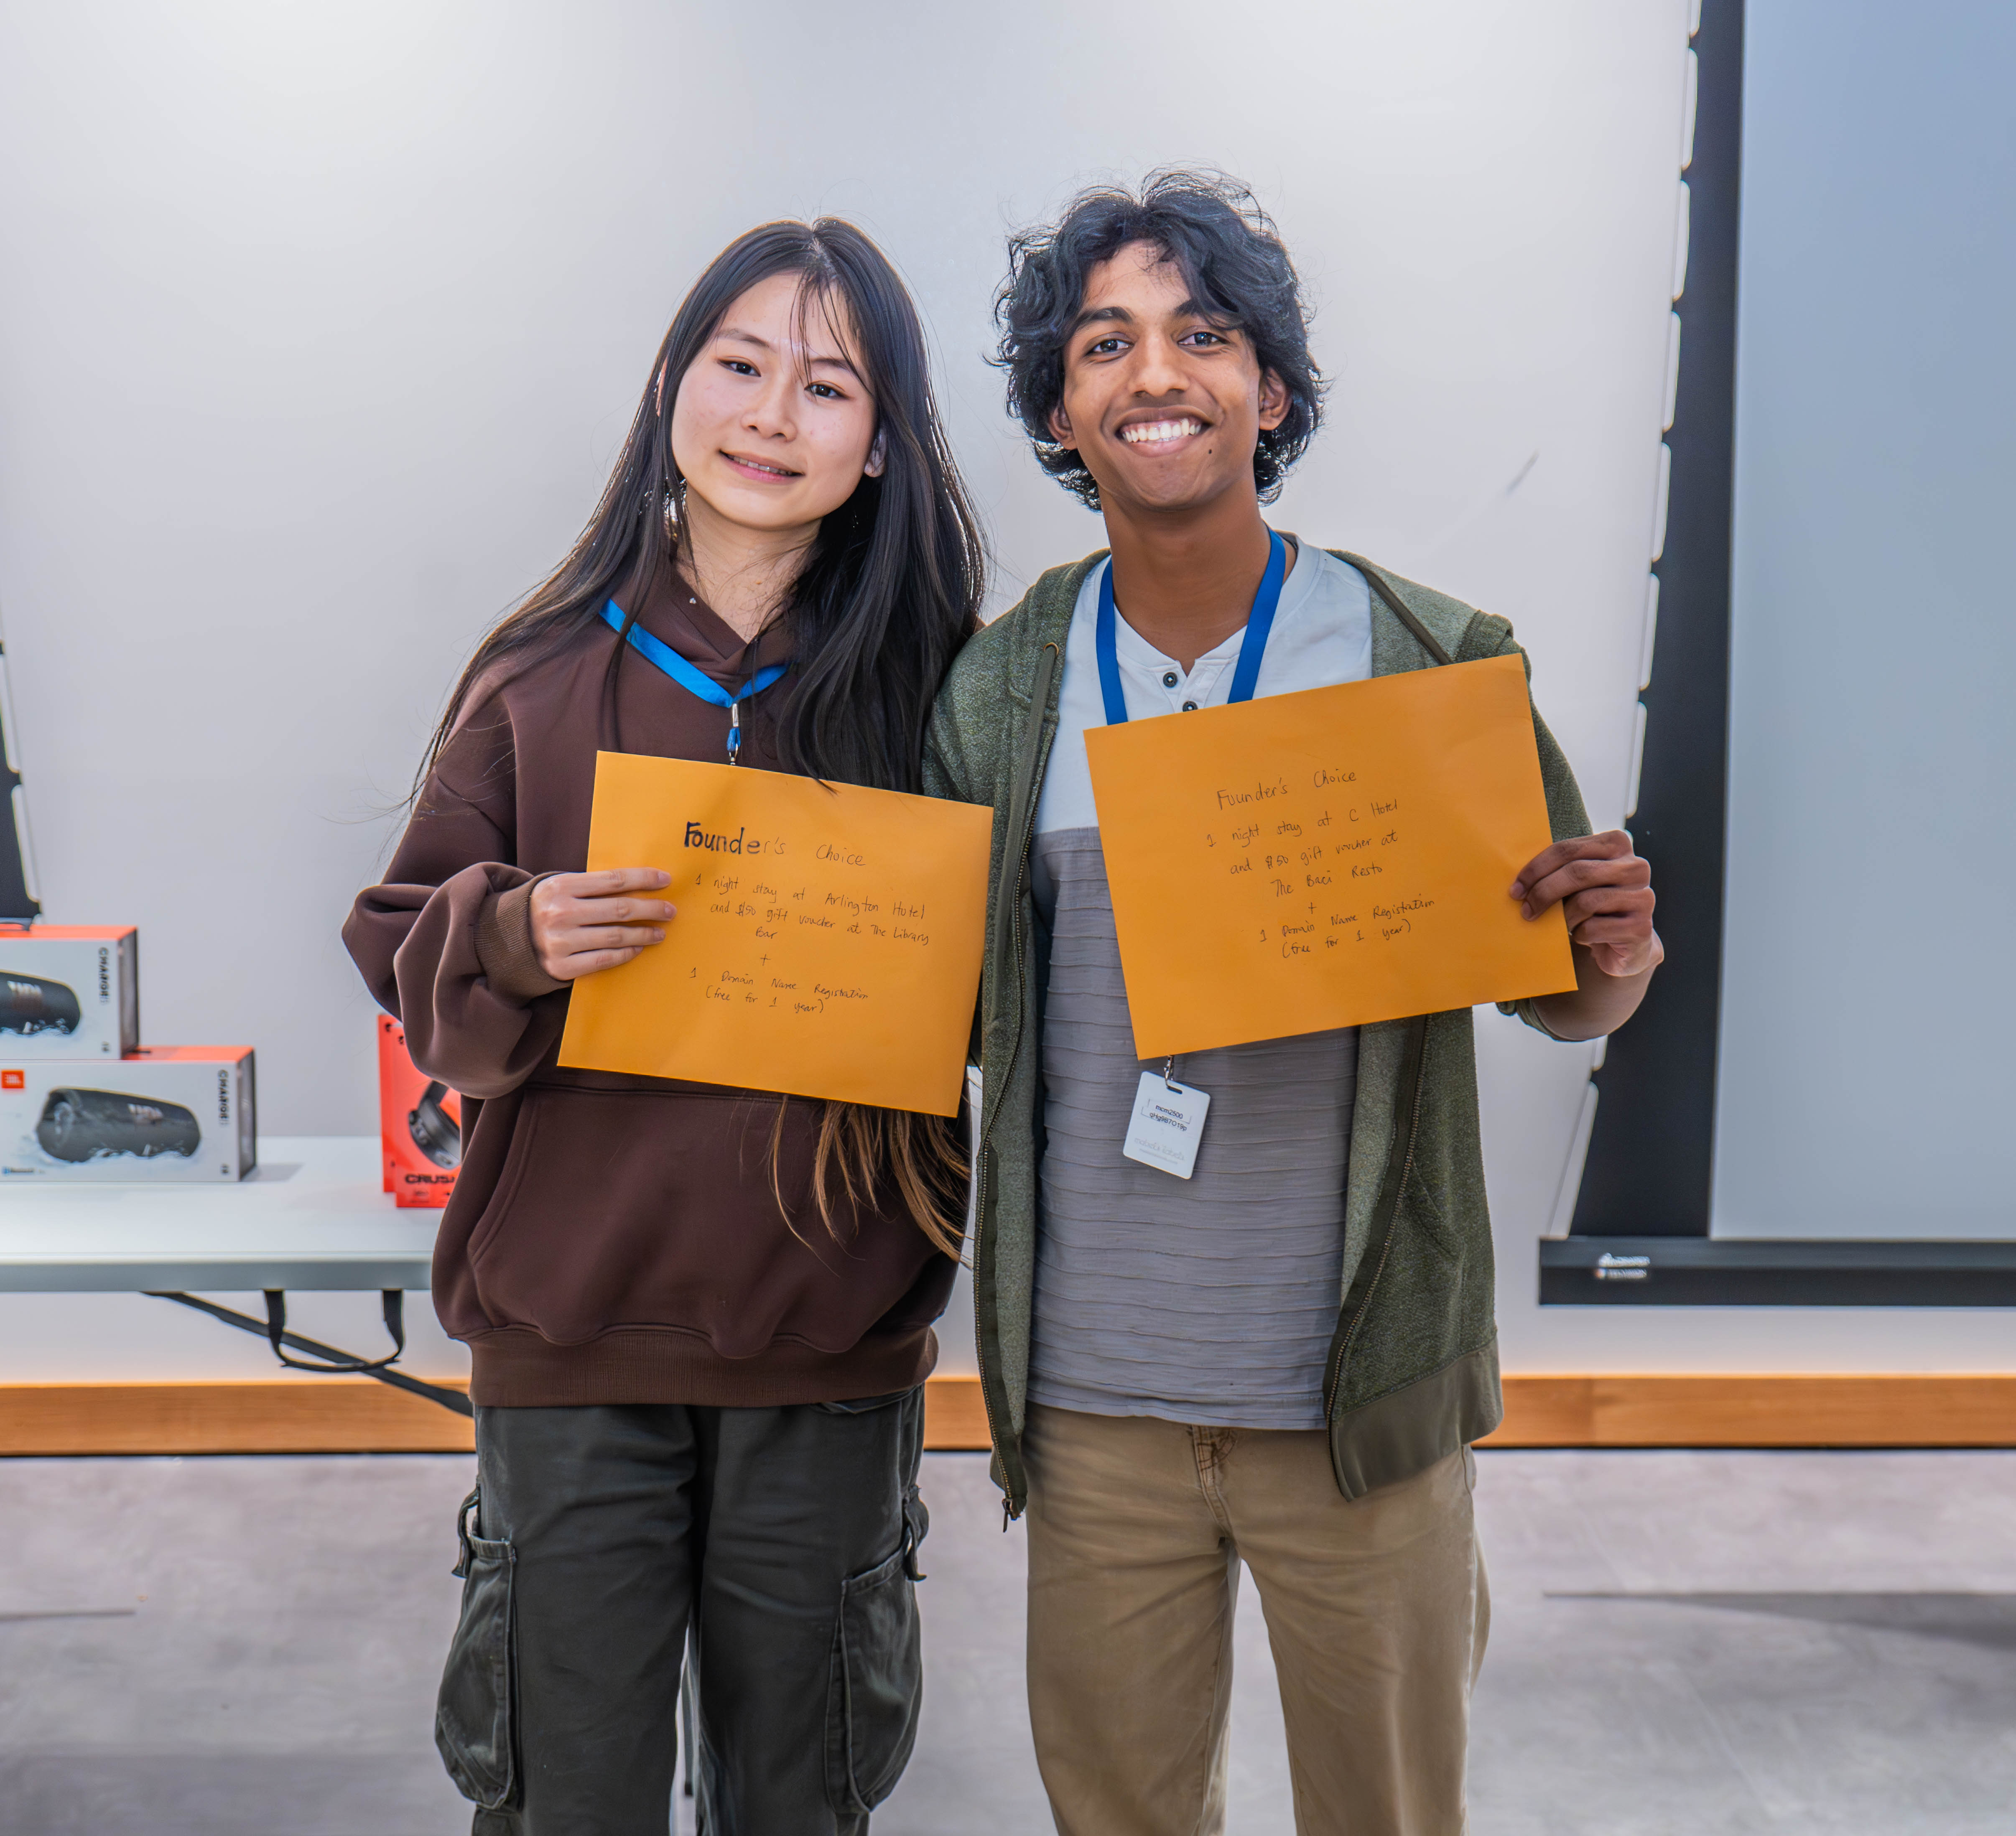 Founder's Choice
1 night stay at Arlington Hotel
and $50 gift voucher at The Library
Bar
+
1 Domain Name Registration
(free for 1 year)
Founder's Choice
1 night stay at C Hotel
and $50 gift voucher at
The Baci Resto
+
1 Domain Name Registration
(free for 1 year)
JBL
CRUS